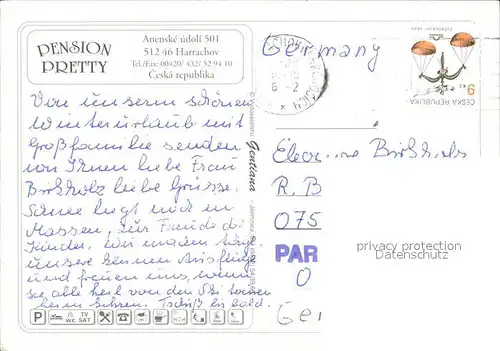 PENSION
PRETTY
Anenské údolí 501
512 46 Harrachov
Tel./Fax: 00420/ 432/ 52 94 10
Česká republika
Germany
9 Kč
ČESKÁ REPUBLIKA
Von unserm schönen
Winterurlaub mit
Großfamilie senden
wir Ihnen liebe Frau
Birkholz liebe Grüsse.
liegt hier in
Massen, zur Freude der
Kinder. Wir machen
unsere kleinen Ausflüge
und freuen uns, wenn
sie alle heil von den Ski
Tschüß bis bald.
Gentiana
Birkholz
R. B
075
PAR
O
Ger
privacy protection
P TV WC SAT